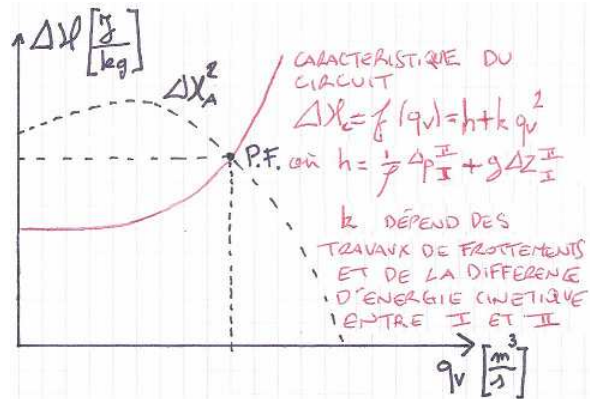 Δℋ [J/kg]
Δℋ_A^2
CARACTERISTIQUE DU
CIRCUIT
Δℋ_c = f(qv) = h + k qv²
P.F.
où h = 1/ρ Δp_I^II + g Δz_I^II
k DÉPEND DES
TRAVAUX DE FROTTEMENTS
ET DE LA DIFFERENCE
D'ENERGIE CINETIQUE
ENTRE I ET II
qv [m³/s]